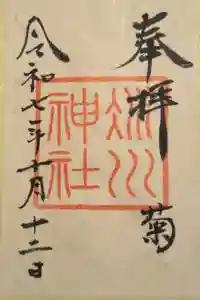 奉拝
菊
氷川
神社
令和七年十月十二日